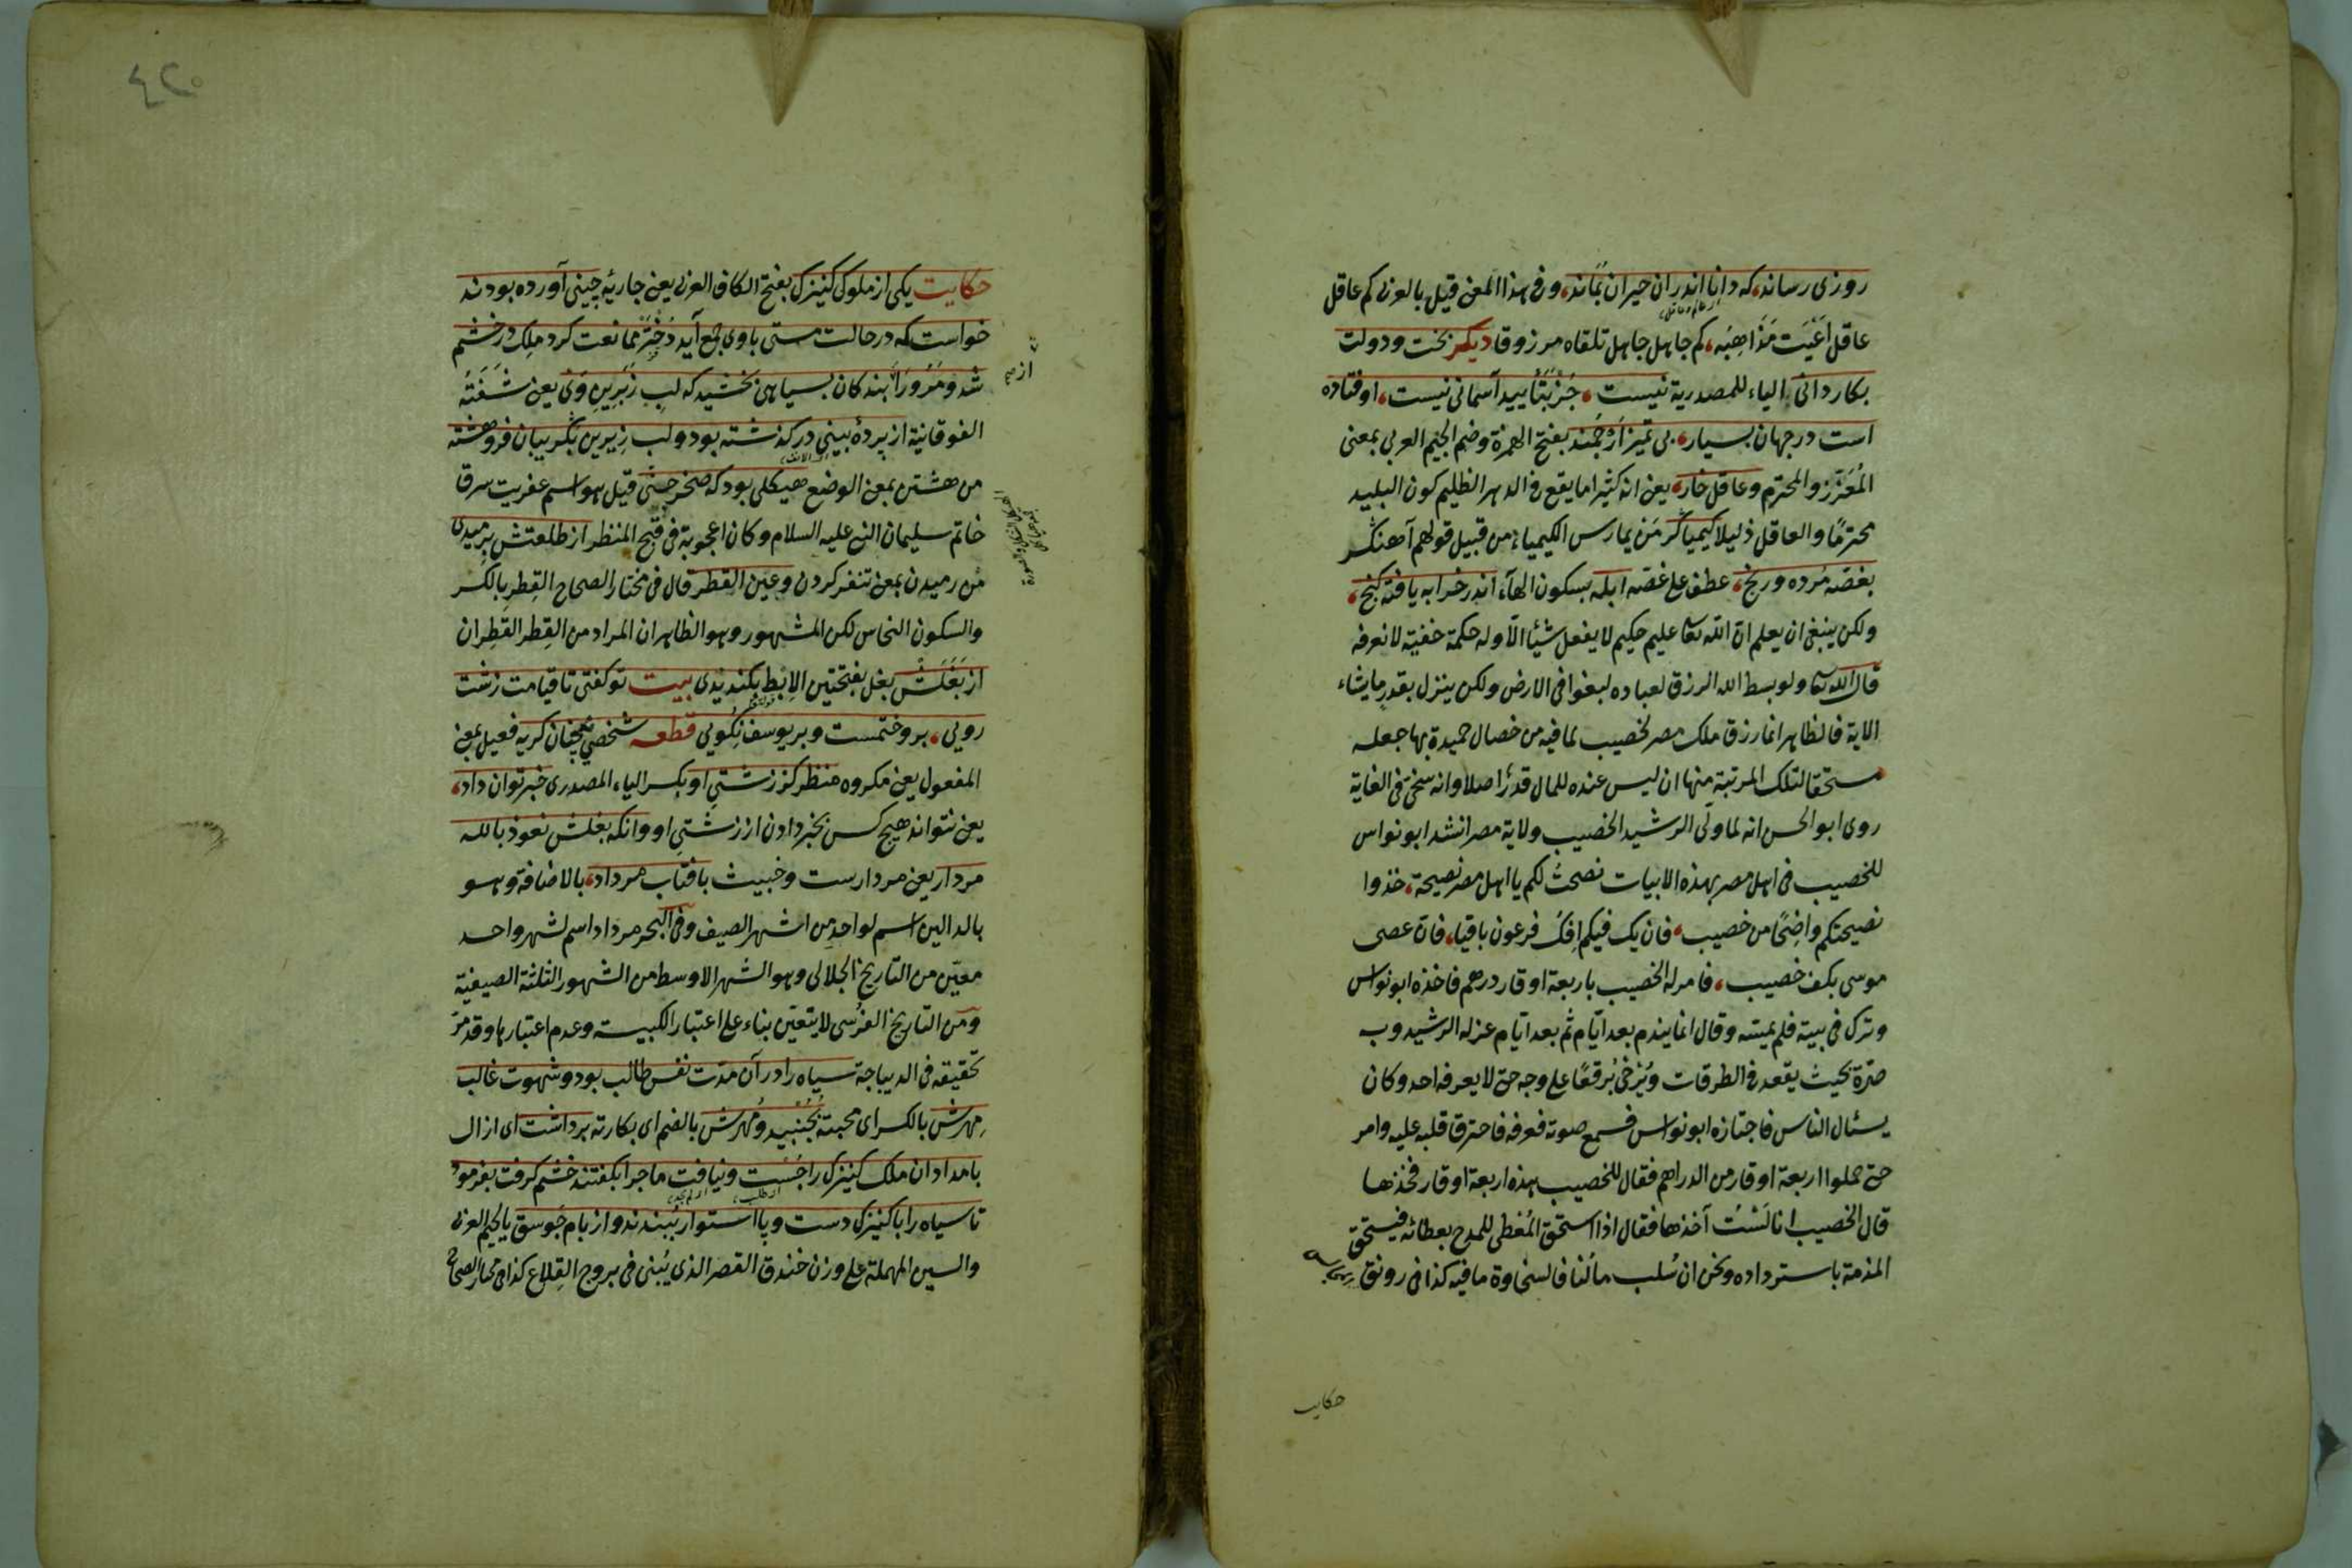 روزی رساند که دانا اندران حیران بماند وفی هذا المعنی قیل بالعربی کم عاقل
عاقل اعیت مذاهبه کم جاهل جاهل تلقاه مرزوقا دیکر بخت ودولت
بکاردانی الیاء للمصدریة نیست جز بتأیید آسمانی نیست اوفتاده
است درجهان بسیار بی تمیز ارجمند بفتح الهمزة وضم الجیم العربی بمعنی
المعزز والمحترم وعاقل خار یعنی انه کثیرا ما یقع فی الدهر الظلیم کون البلید
محترمًا والعاقل ذلیلا کیمیاکر من یمارس الکیمیاء من قبیل قولهم آهنکر
بغصه مرده ورنج عطف علی غصه ابله بسکون الهاء اندر خرابه یافته کنج
ولکن ینبغی ان یعلم ان الله تعالی علیم حکیم لا یفعل شیئا الا وله حکمة خفیة لا نعرفه
قال الله تعالی ولو بسط الله الرزق لعباده لبغوا فی الارض ولکن ینزل بقدر ما یشاء
الایة فالظاهر انما رزق ملک مصر لخصیب لما فیه من خصال حمیدة بها جعله
مستحقا لتلک المرتبة منها ان لیس عنده للمال قدرٌ اصلا وانه سخی فی الغایة
روی ابو الحسن انه لما ولی الرشید الخصیب ولایة مصر انشد ابو نواس
للخصیب فی اهل مصر بهذه الابیات نصحت لکم یا اهل مصر نصیحة خذوا
نصیحتکم واضحًا من خصیب فان یک فیکم افک فرعون باقیا فان عصی
موسی بکف خصیب فامر له الخصیب باربعة اوقار درهم فاخذه ابو نواس
وترک فی بیته فلم یمسه وقال انما یندم بعد ایام ثم بعد ایام عزله الرشید وب
صرة بحیث یقعد فی الطرقات ویرخی برقعًا علی وجه حتی لا یعرفه احد وکان
یسئال الناس فاجتازه ابو نواس فسمع صوته فعرفه فاحترق قلبه علیه وامر
حتی حملوا اربعة اوقار من الدراهم فقال للخصیب هذه اربعة اوقار فخذها
قال الخصیب انا لست آخذها فقال اذا استحق المعطی للمدح بعطائه فیستحق
المذمة باسترداده ونحن ان سلب مالنا فالسخاوة ما فیه کذا فی رونق
حکایت
٤٢٠
حکایت یکی از ملوک کنیزک بفتح الکاف العربی یعنی جاریة چینی آورده بودند
خواست که درحالت مستی باوی جمع آید دختر ممانعت کرد ملک درخشم
شد ومرورا ببندکان بسیاهی بخشید که لب زبرین وی یعنی شفته
الفوقانیة از پردۀ بینی درکذشته بود ولب زیرین بکریبان فروهشته
من هشتن بمعنی الوضع هیکلی بود که صخر جنی قیل هو اسم عفریت سرق
خاتم سلیمان النبی علیه السلام وکان اعجوبة فی قبح المنظر از طلعتش برمیدی
من رمیدن بمعنی تنفر کردن وعین القطر قال فی مختار الصحاح القطر بالکسر
والسکون النحاس لکن المشهور وهو الظاهر ان المراد من القطر القطران
از بغلش بغل بفتحتین الابط بکندیدی بیت توکفتی تا قیامت زشت
رویی بروختمست وبر یوسف نکویی قطعه شخصی نچنان کریه فعیل بمعنی
المفعول یعنی مکروه منظر کز زشتی او بکسر الیاء المصدری خبر توان داد
یعنی نتواند هیچ کس بخبر دادن از زشتی او وانکه بغلش نعوذ بالله
مردار یعنی مردارست وخبیث بافتاب مرداد بالاضافة وهو
بالدالین اسم لواحد من اشهر الصیف وفی البحر مرداد اسم لشهر واحد
معین من التاریخ الجلالی وهو الشهر الاوسط من الشهور الثلثة الصیفیة
ومن التاریخ الفرسی لا یتعین بناء علی اعتبار الکبیسة وعدم اعتبارها وقد مر
تحقیقه فی الدیباجة سیاه را در آن مدت نفس طالب بود وشهوت غالب
مهرش بالکسر ای محبته بجنبید ومهرش بالضم ای بکارته برداشت ای ازال
بامدادان ملک کنیزک را جست ونیافت ماجرا بکفتند خشم کرفت بفرمود
تا سیاه را با کنیزک دست وپا استوار ببندند واز بام جوسق بالجیم العربی
والسین المهملة علی وزن خندق القصر الذی یبنی فی بروج القلاع کذا فی مختار الصحاح